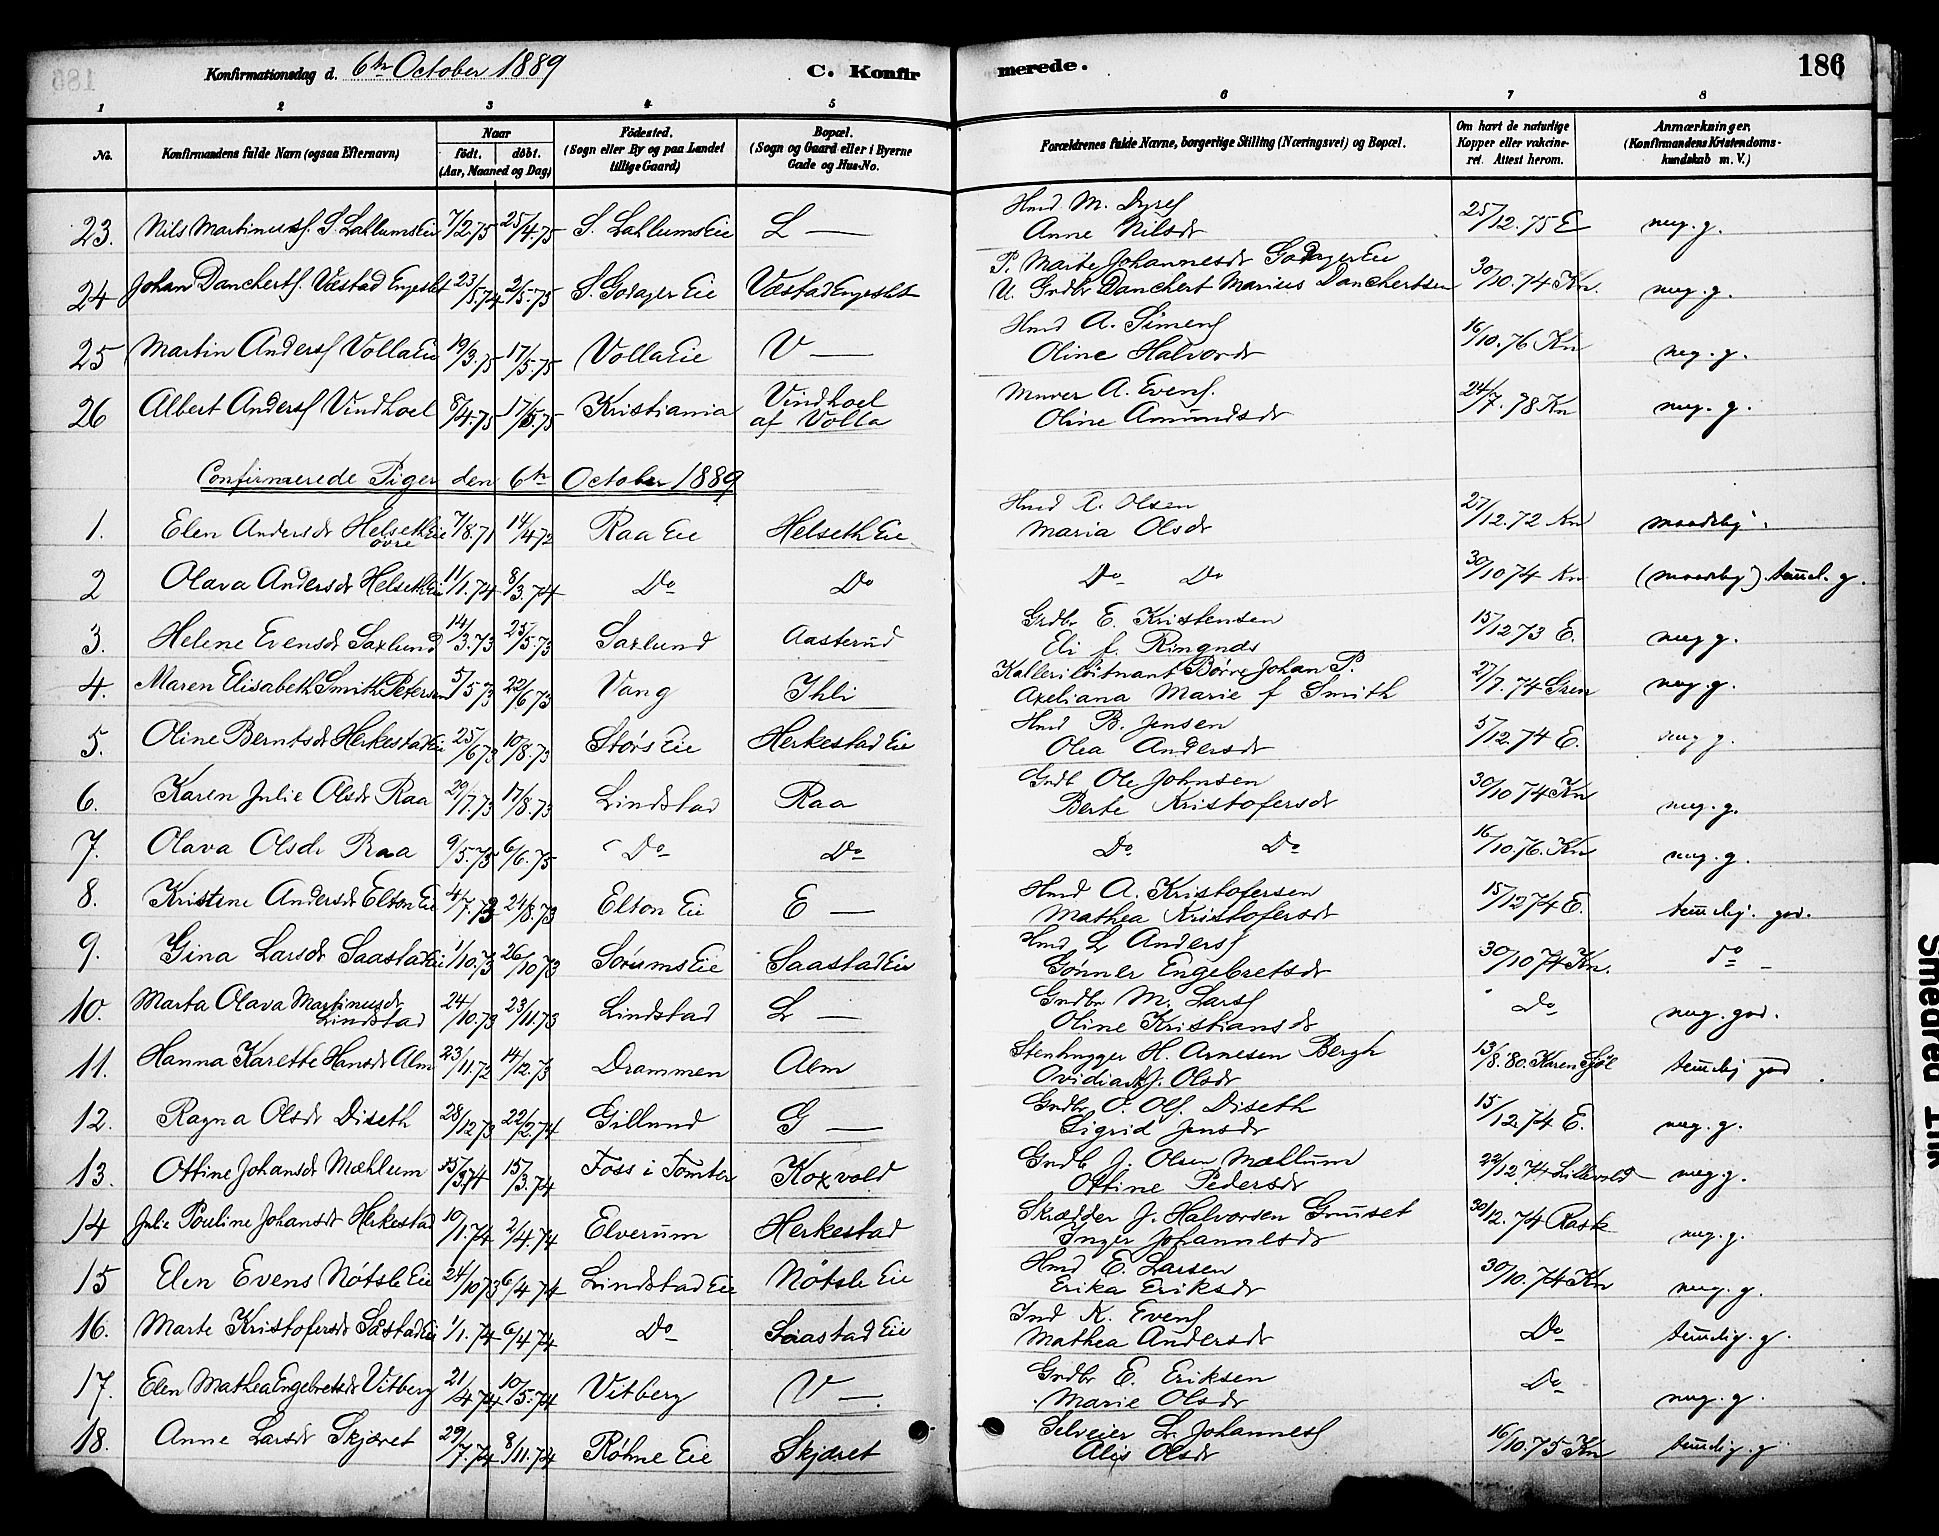 Konfirmationsdag d. 6te October 1889
C. Konfirmerede.
186
1 2 3 4 5 6 7 8
No.
Konfirmandens fulde Navn (ogsaa Efternavn)
Naar
født. døbt.
(Aar, Maaned og Dag)
Fødested.
(Sogn eller By og paa Landet
tillige Gaard)
Bopæl.
(Sogn og Gaard eller i Byerne
Gade og Hus-No.
Forældrenes fulde Navne, borgerlige Stilling (Næringsvei) og Bopæl.
Om havt de naturlige
Kopper eller vakcine-
ret. Attest herom.
Anmærkninger.
(Konfirmandens Kristendoms-
kundskab m. V.)
23. Nils Martinuss. S. Lahlums Eie 7/2.75 25/4.75 S. Lahlums Eie L — Hmd M. Dyres Anne Nilsdr 25/12.75 E meg. g.
24 Johan Dancherts. Væstad Engeslet 23/5.74 2/5.75 S. Godager Eie Væstad Engeslet P. Marte Johannesdr Godager Eie
U. Grdbr Danchert Marius Danchertsen 30/10.74 Kn. meg. g.
25 Martin Anders Volla Eie 19/3.75 17/5.75 Volla Eie V — Hmd A. Simens
Oline Halvordr 16/10.76 Kn meg. g.
26 Albert Anders Vindhoel 8/4.75 17/5.75 Kristiania Vindhoel
af Volla Murer A. Evens.
Oline Amundsdr 24/7.78 Kn meg. g.
Confirmerede Piger den 6te October 1889
1. Elen Andersdr Helseth Eie
øvre 7/8.71 14/4 72 Raa Eie Helseth Eie Hmd A. Olsen
Maria Olsdr 27/12.72 Kn maadelig.
2 Olava Andersdr Helseth Eie 11/1.74 8/3.74 Do Do Do Do 30/10 74 Kn (maadelig) temel. g.
3. Helene Evensdr Saxlund 14/3.73 25/5.73 Saxlund Aasterud Grdbr E. Kristensen
Eli f. Ringnds 15/12 73 E. meg g.
4. Maren Elisabeth Smith Petersen 5/5 73 22/6 73 Vang Ihli Kalleriløitnant Børre Johan P.
Axeliana Marie f Smith 27/7.74 Gren meg. g.
5. Oline Berntsdr Herkestad Eie 25/6 73 10/8.73 Størs Eie Herkestad Eie Hmd B. Jensen
Olea Andersdr 5/12.74 E. meg g.
6. Karen Julie Olsdr Raa 29/7.73 17/8.73 Lindstad Raa Grdb Ole Johnsen
Berte Kristofersdr 30/10 74 Kn meg. g.
7. Olava Olsdr Raa 9/5.75 6/6.75 Do Do Do Do 16/10.76. Kn meg. g.
8. Kristine Andersdr Elton Eie 4/7.73 24/8.73 Elton Eie E — Hmd A. Kristofersen
Mathea Kristofersdr 15/12 74 E. temelig. god.
9. Gina Larsdr Saastad Eie 1/10.73 26/10 73 Sørums Eie Saastad Eie Hmd L Anders
Gønner Engebretsdr 30/10 74 Kn. do —
10. Marta Olava Martinusdr
Lindstad 24/10.73 23/11.73 Lindstad L — Grdbr M. Lars
Oline Kristiansdr Do meg. god.
11. Hanna Karette Hansdr Alm 23/11.72 14/12.73 Drammen Alm Stenhugger H. Arnesen Bergh
Olsdr 13/8.80. Karen temelig god.
12. Ragna Olsdr Diseth 28/12 73 22/2.74 Gillund G — Grdbr O. Ols. Diseth
Sigrid Jensdr 15/12.74 E. meg. g.
13. Ottine Johansdr Mæhlum 15/3.74 Foss i Tomter Koxvold Grdb J. Olsen Mæhlum
Ottine Pedersdr 22/12.74 Lillevold meg g.
14 Julie Pouline Johansdr Herkestad 10/1.74 2/4.74 Elverum Herkestad Skrædder J. Halvorsen Gruset
Inger Johannesdr 30/12.74 Rask meg. g.
15 Elen Evens Nøtsle Eie 24/10 73 6/4.74 Lindstad Eie Nøtsle Eie Hmd E. Larsen
Erika Eriksdr 30/10.74 Kn meg. g.
16. Marte Kristofersdr Såstad Eie 1/1.74 6/4 74 Do Saastad Eie Ind K. Evens
Mathea Andersdr Do temelig. g.
17. Elen Mathea Engebretsdr Vitberg 21/4 74 10/5.74 Vitberg V — Grdbr E. Eriksen
Marie Olsdr Do meg. g.
18. Anne Larsdr Skjæret 29/7.74 8/11.74 Røhne Eie Skjæret Selveier L. Johannes
Alis Olsdr 16/10.75 Kn temelig. g
Smeared Ink